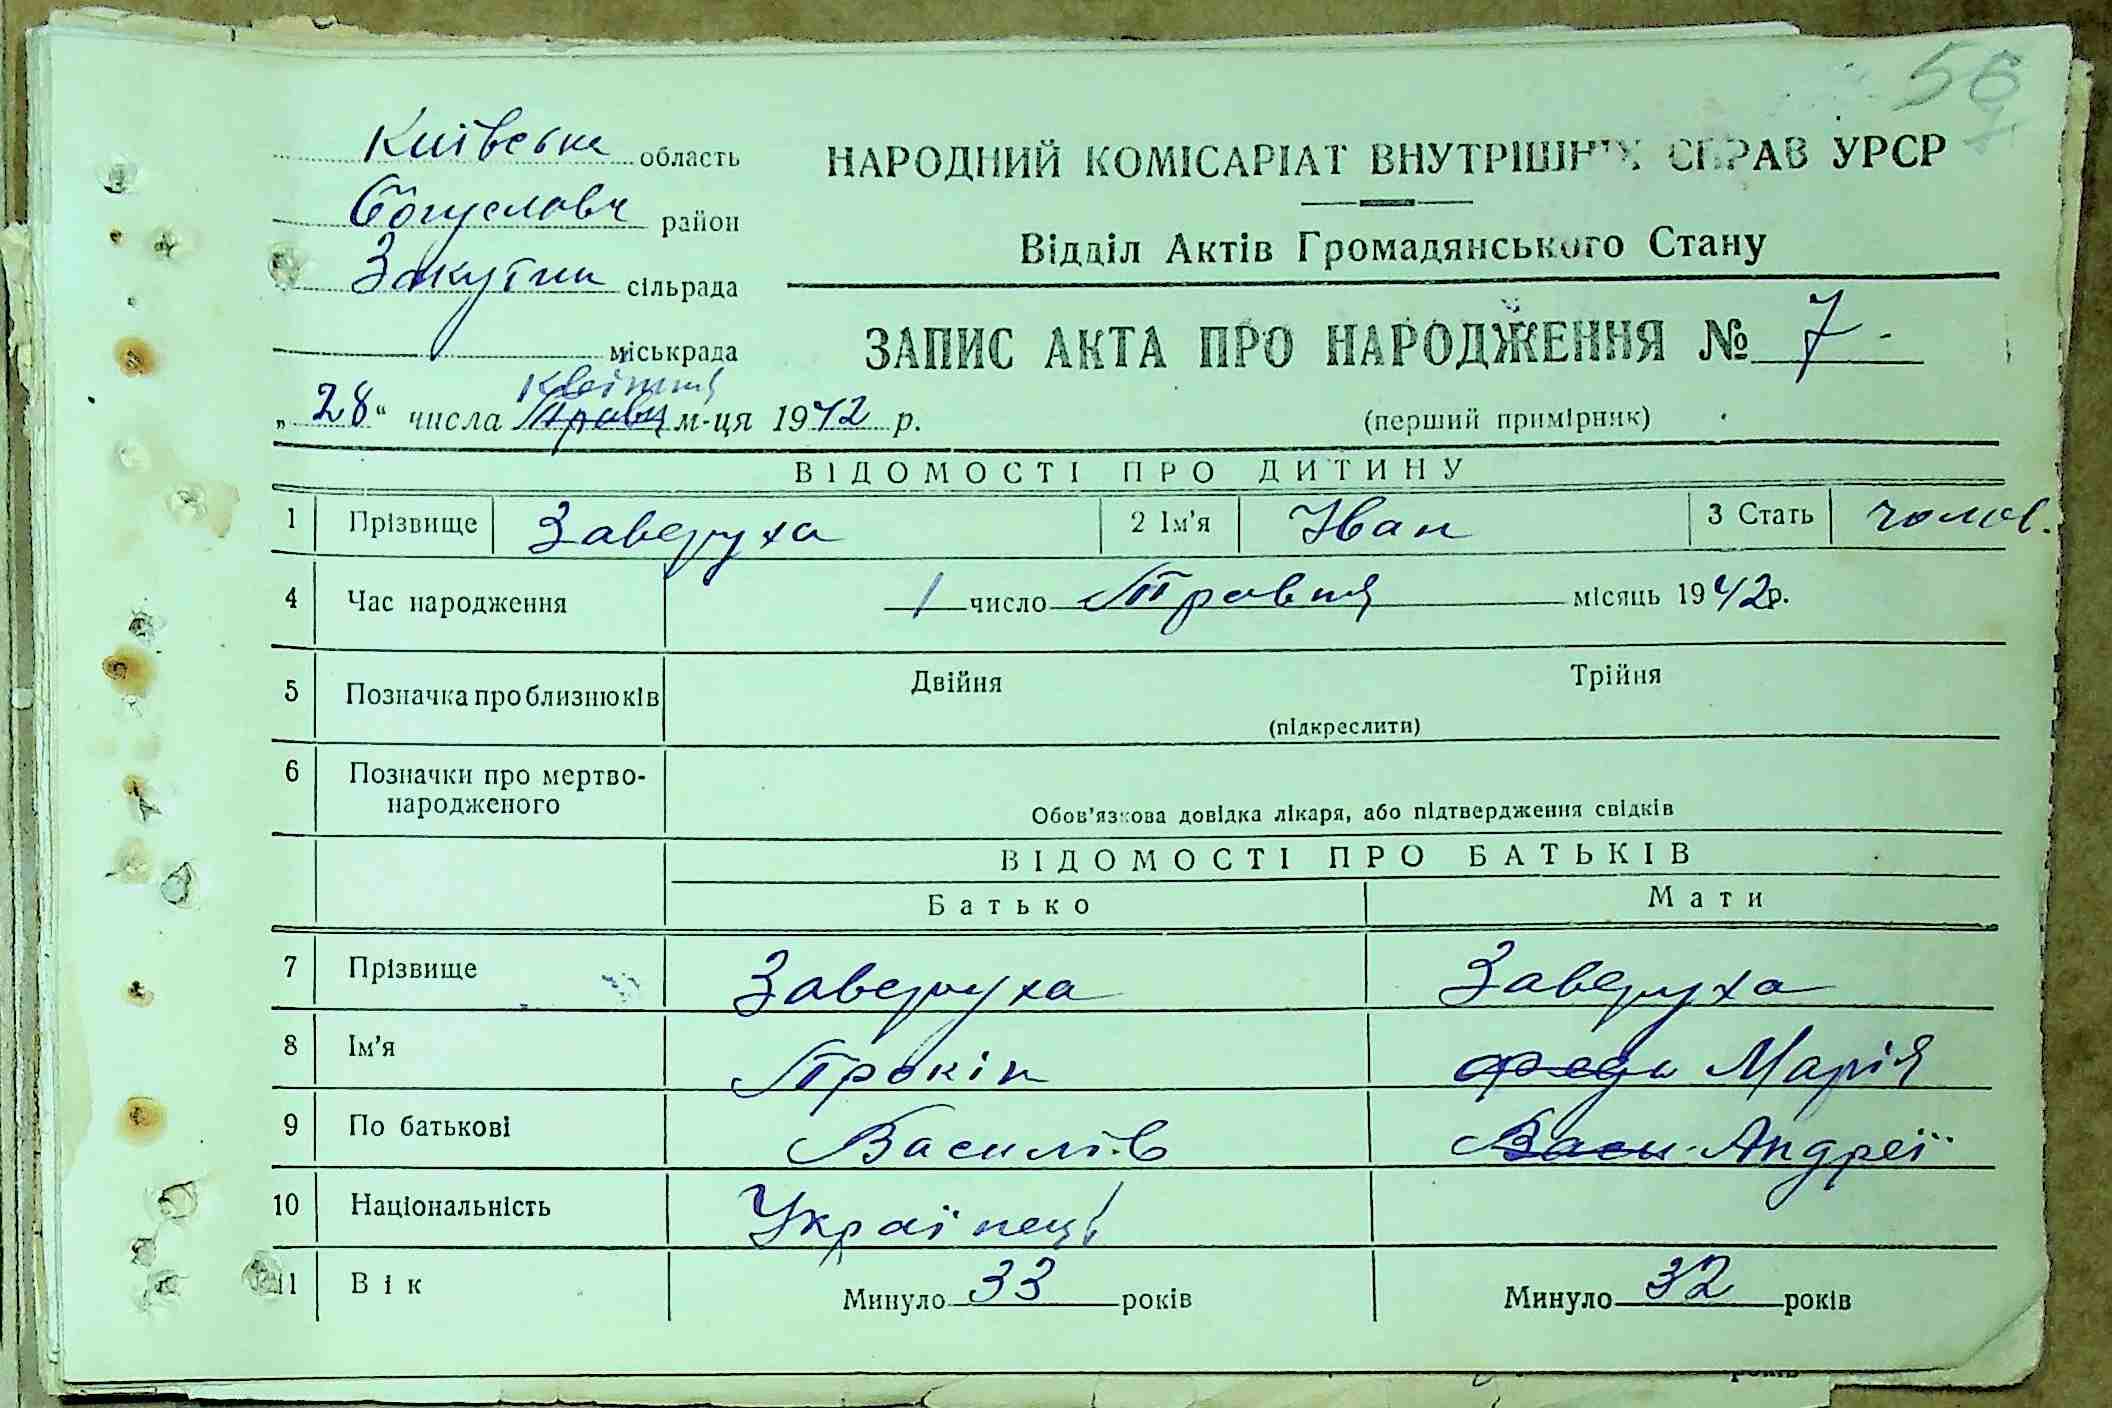 56
Київська область
НАРОДНИЙ КОМІСАРІАТ ВНУТРІШНІХ СПРАВ УРСР
Богуславськ район
Відділ Актів Громадянського Стану
Закутин сільрада
міськрада
ЗАПИС АКТА ПРО НАРОДЖЕННЯ № 7
Квітня
„28“ числа Травц м-ця 1942 р.
(перший примірник)
ВІДОМОСТІ ПРО ДИТИНУ
1 Прізвище Заверуха 2 Ім'я Іван 3 Стать чолов.
4 Час народження 1 число Травня місяць 1942 р.
5 Позначка про близнюків Двійня Трійня
(підкреслити)
6 Позначки про мертво-
народженого
Обов'язкова довідка лікаря, або підтвердження свідків
ВІДОМОСТІ ПРО БАТЬКІВ
Батько Мати
7 Прізвище Заверуха Заверуха
8 Ім'я Прокіп Федо Марія
9 По батькові Василів Васи Андреї
10 Національність Українець
11 Вік Минуло 33 років Минуло 32 років
років